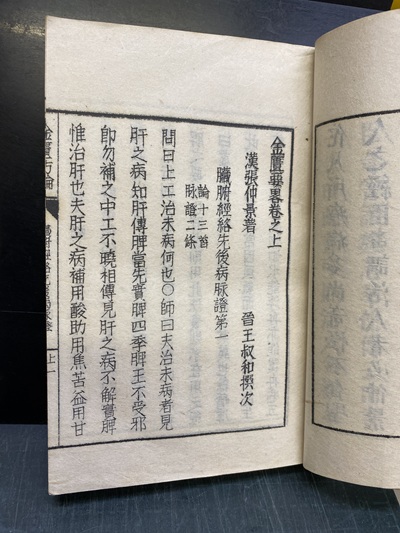 金匱要畧卷之上
漢張仲景著
晉王叔和撰次
臟腑經絡先後病脉證第一
論十三首
脉證二條
問曰上工治未病何也〇師曰夫治未病者見
肝之病知肝傳脾當先實脾四季脾王不受邪
即勿補之中工不曉相傳見肝之病不解實脾
惟治肝也夫肝之病補用酸助用焦苦益用甘
金匱方論
上一